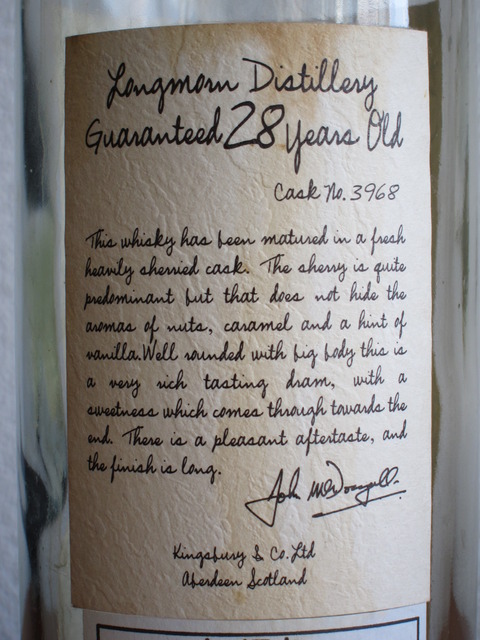 Longmorn Distillery
Guaranteed 28 years Old
Cask No. 3968
This whisky has been matured in a fresh
heavily sherried cask. The sherry is quite
predominant but that does not hide the
aromas of nuts, caramel and a hint of
vanilla.Well rounded with big body this is
a very rich tasting dram, with a
sweetness which comes through towards the
end. There is a pleasant aftertaste, and
the finish is long.
John McDougall
Kingsbury & Co. Ltd
Aberdeen Scotland